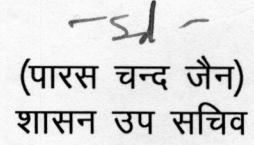 -sd-
(पारस चन्द जैन)
शासन उप सचिव